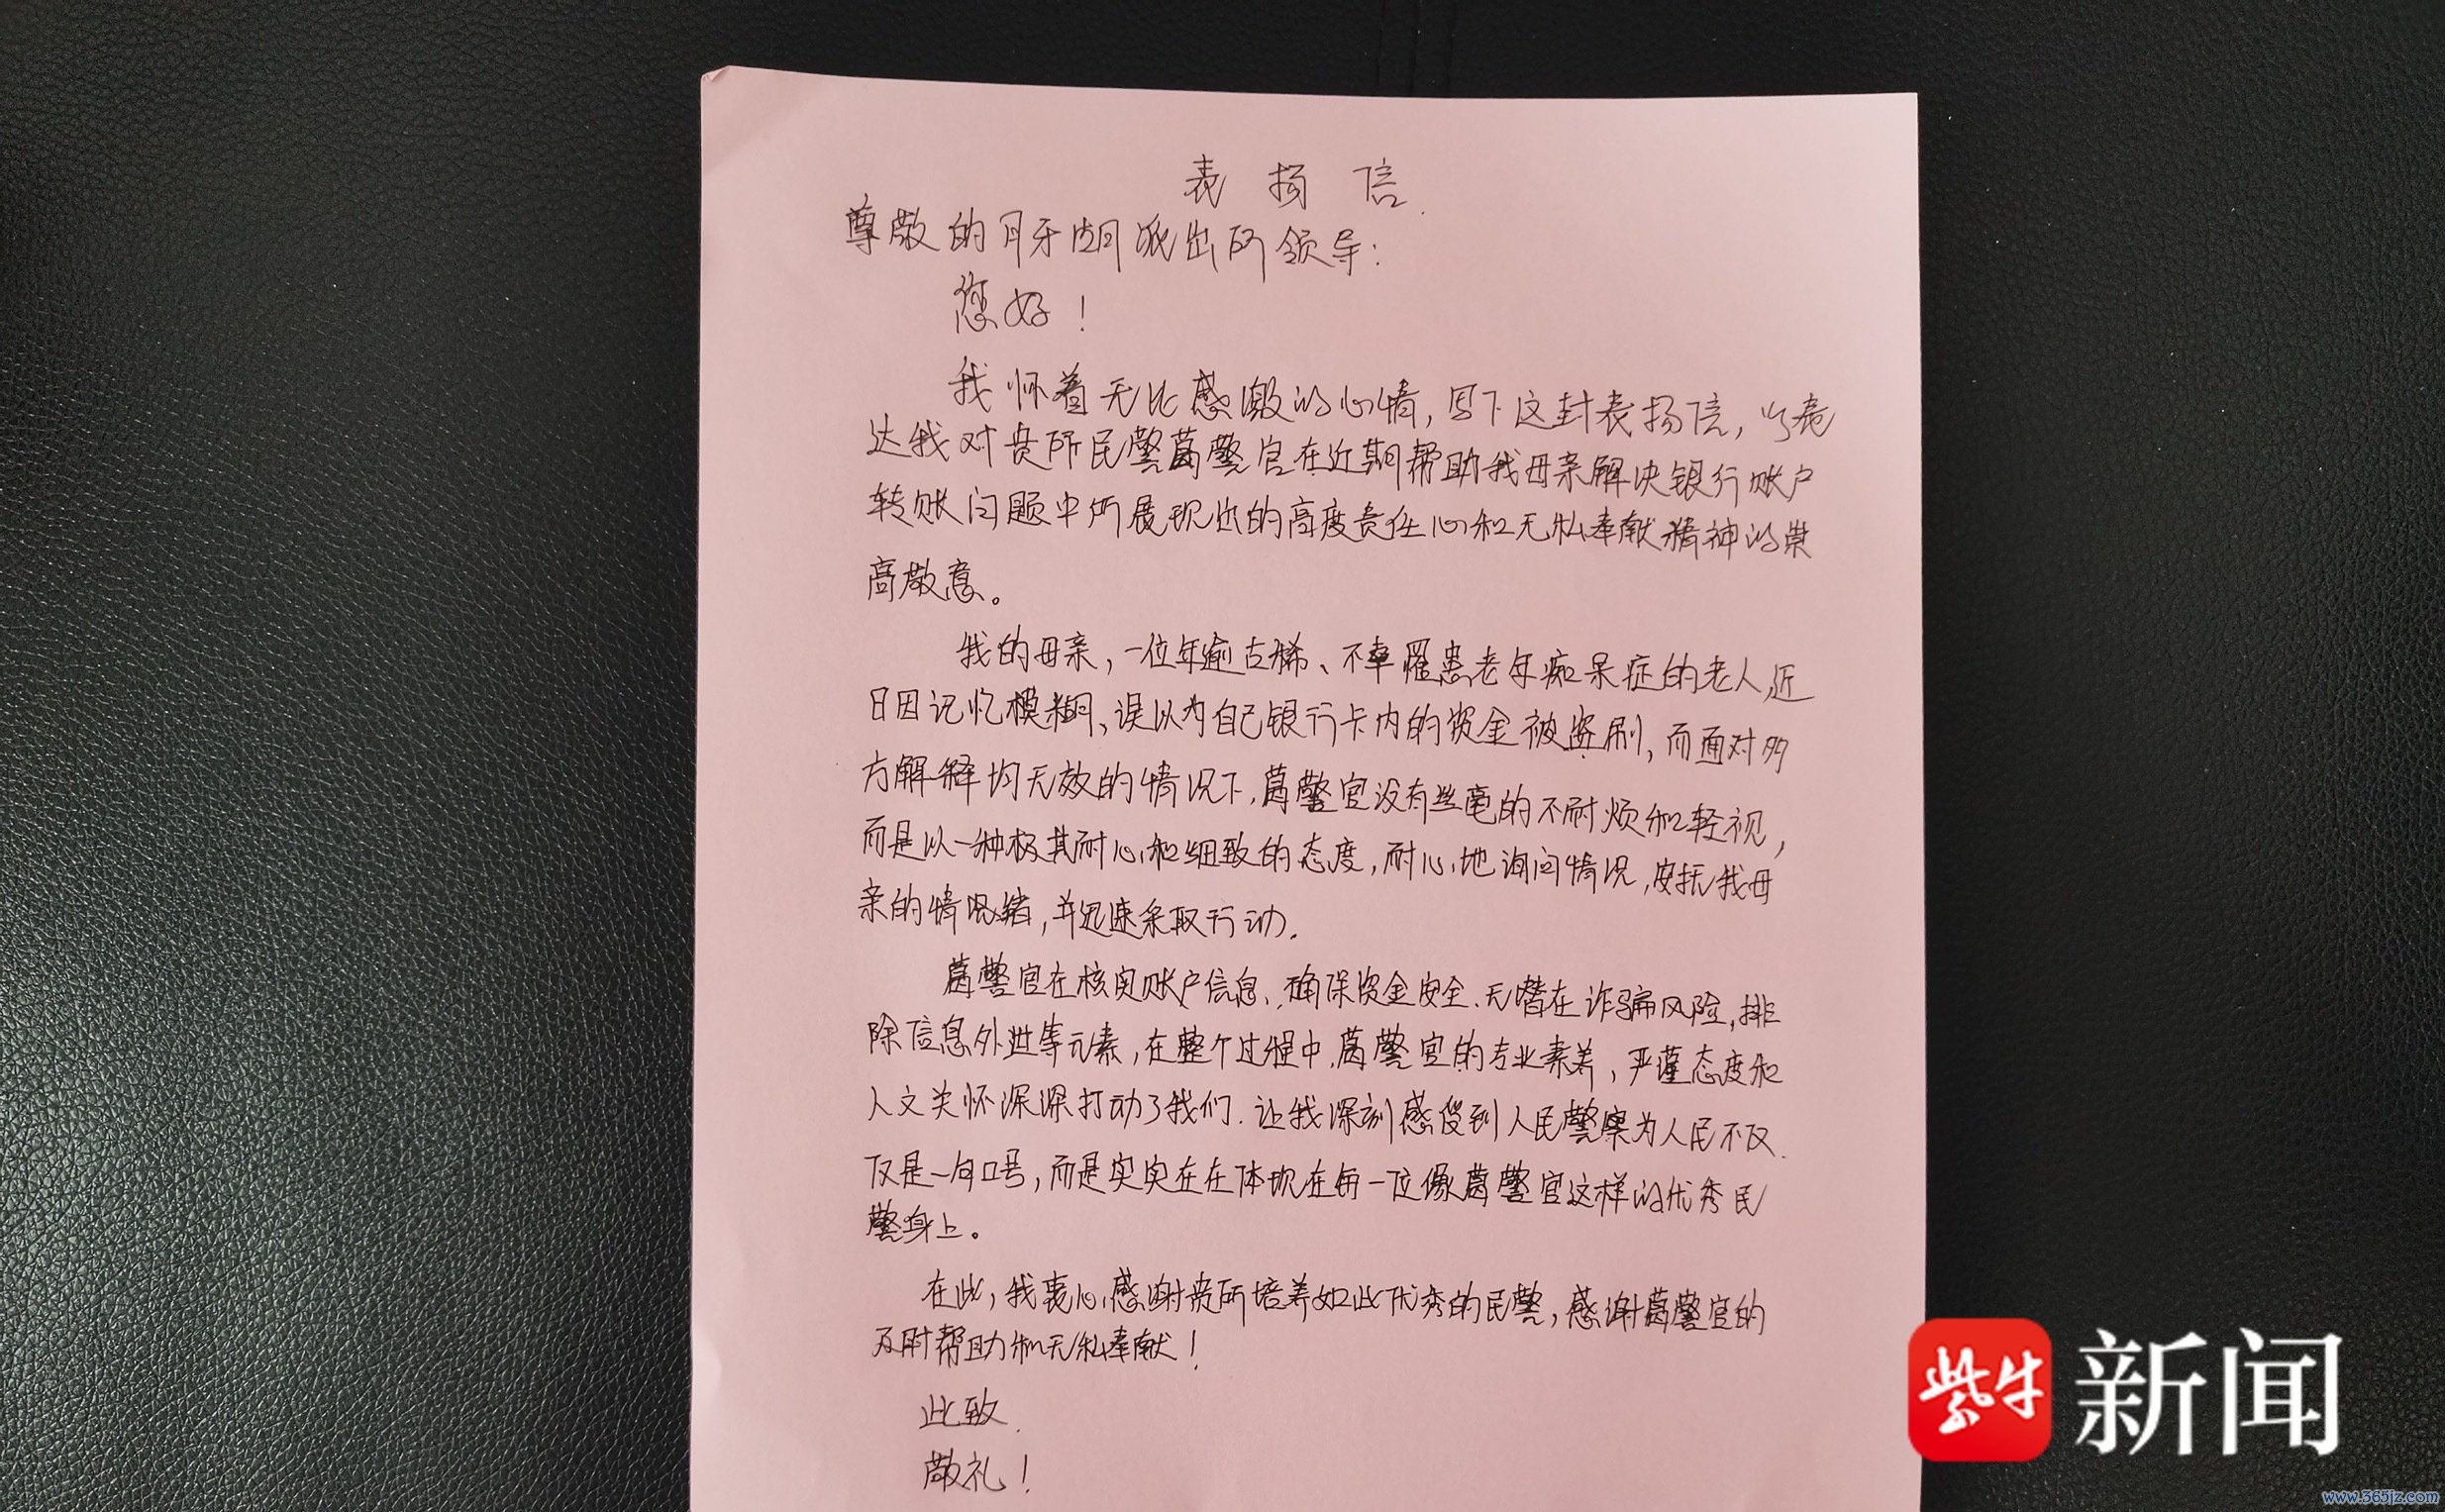 表扬信
尊敬的月牙湖派出所领导：
您好！
我怀着无比感激的心情，写下这封表扬信，以表
达我对贵所民警葛警官在近期帮助我母亲解决银行账户
转账问题中所展现出的高度责任心和无私奉献精神的崇
高敬意。
我的母亲，一位年逾古稀、不幸罹患老年痴呆症的老人，近
日因记忆模糊、误以为自己银行卡内的资金被盗刷，而面对多
方解释均无效的情况下，葛警官没有丝毫的不耐烦和轻视，
而是以一种极其耐心和细致的态度，耐心地询问情况，安抚我母
亲的情绪，并迅速采取行动.
葛警官在核实账户信息、确保资金安全、无潜在诈骗风险，排
除信息外泄等元素，在整个过程中，葛警官的专业素养，严谨态度和
人文关怀深深打动了我们.让我深刻感受到人民警察为人民不仅
仅是一句口号，而是实实在在体现在每一位像葛警官这样的优秀民
警身上。
在此，我衷心感谢贵所培养如此优秀的民警，感谢葛警官的
及时帮助和无私奉献！
此致
敬礼！
紫牛 新闻
www.365jz.com